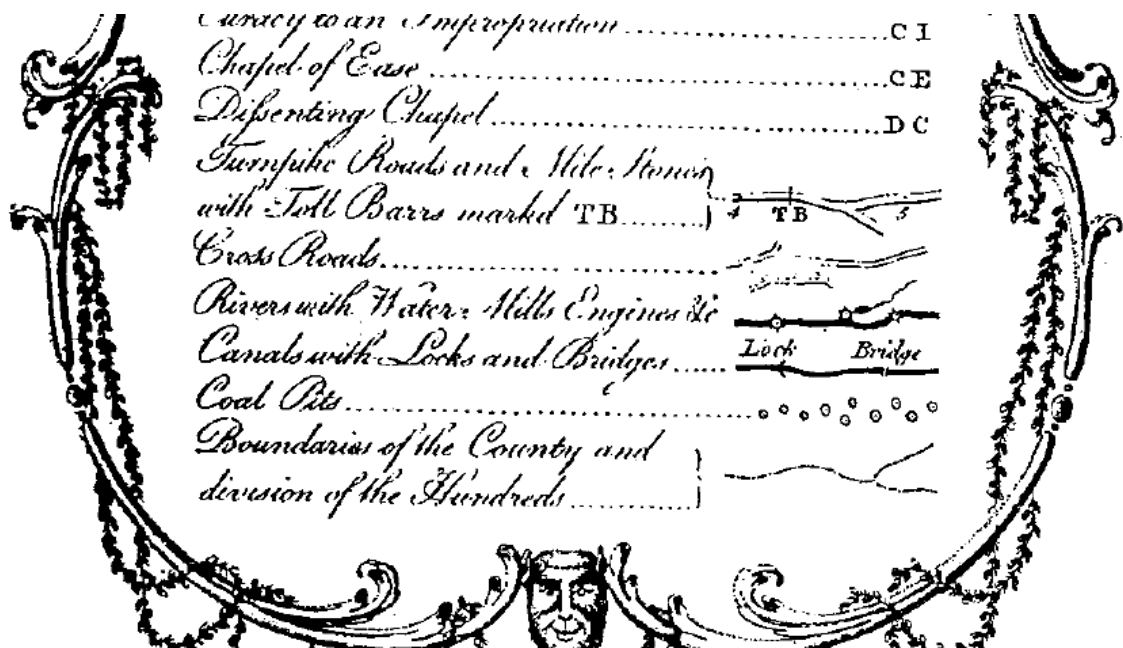 Curacy to an Impropriation ........ C I
Chapel of Ease ........ C E
Dißenting Chapel ........ D C
Turnpike Roads and Mile Stones
with Toll Barrs markd TB ........ 4 TB 5
Cross Roads ........
Rivers with Water Mills Engines &c
Canals with Locks and Bridges ...... Lock Bridge
Coal Pits ........
Boundaries of the County and
division of the Hundreds ........